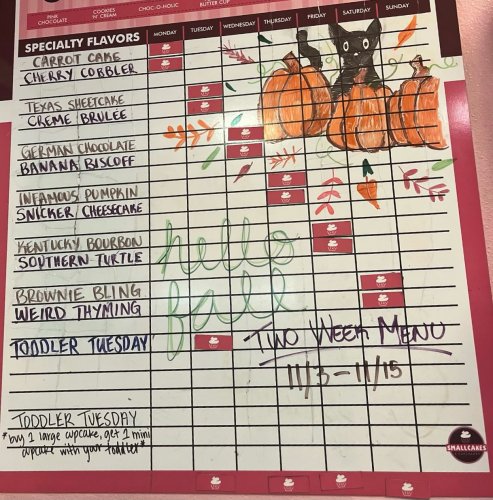 PINK
CHOCOLATE
COOKIES
'N' CREAM
CHOC-O-HOLIC
BUTTER CUP
SPECIALTY FLAVORS MONDAY TUESDAY WEDNESDAY THURSDAY FRIDAY SATURDAY SUNDAY
CARROT CAKE
CHERRY COBBLER
TEXAS SHEETCAKE
CREME BRULEE
GERMAN CHOCOLATE
BANANA BISCOFF
INFAMOUS PUMPKIN
SNICKER CHEESECAKE
KENTUCKY BOURBON
SOUTHERN TURTLE
hello
fall
BROWNIE BLING
WEIRD THYMING
TODDLER TUESDAY
TWO WEEK MENU
11/3 - 11/15
TODDLER TUESDAY
*buy 1 large cupcake, get 1 mini
cupcake with your toddler*
SMALLCAKES